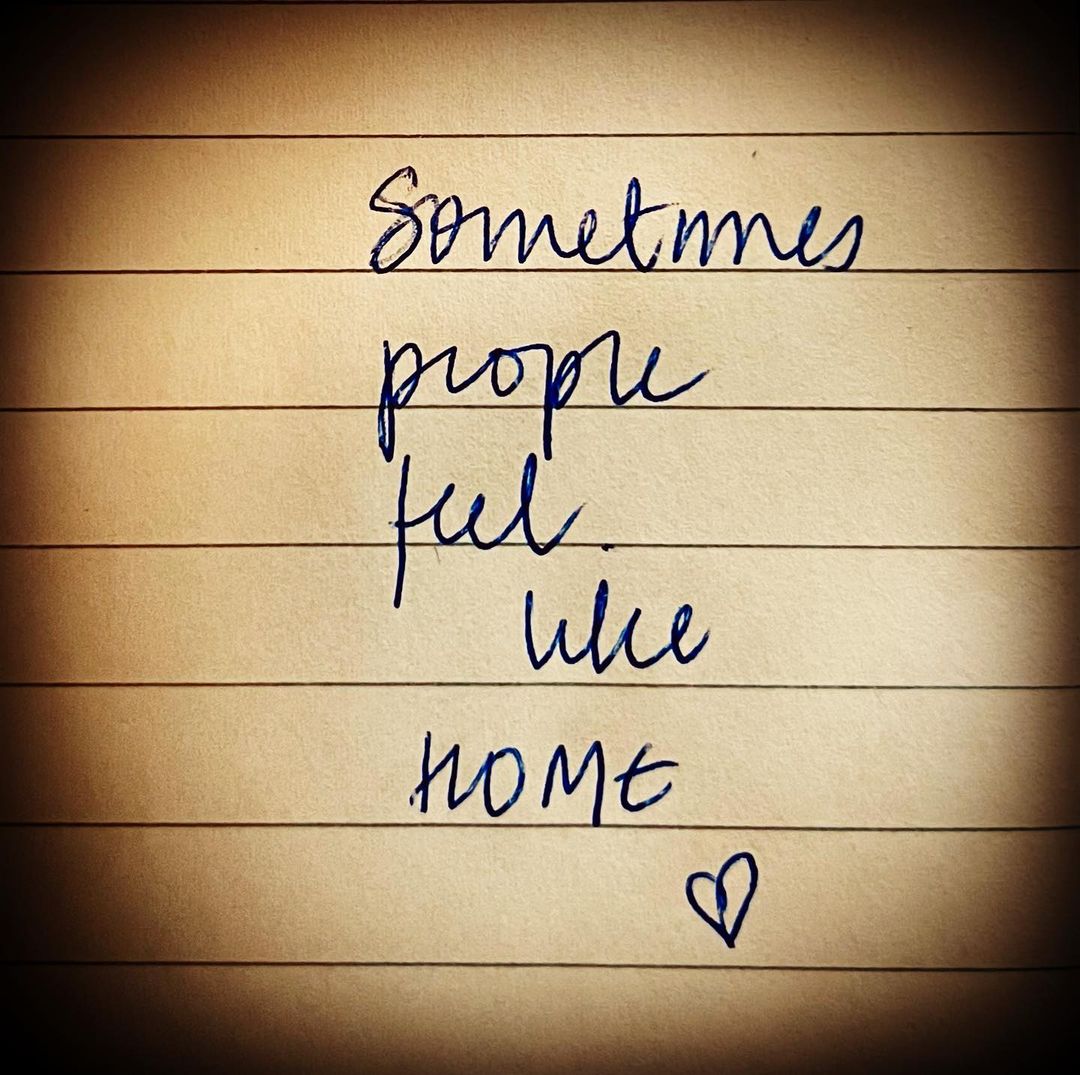 Sometimes
people
feel.
like
HOME